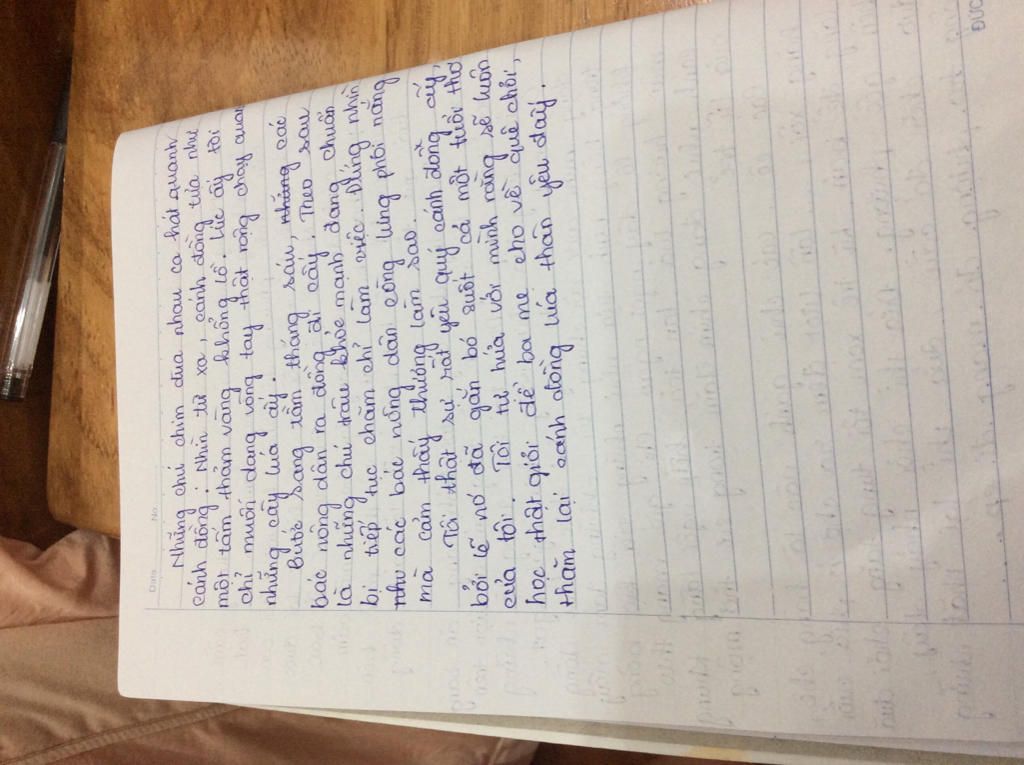 Date No.
Những chú chim đua nhau ca hát quanh
cánh đồng. Nhìn từ xa, cánh đồng tựa như
một tấm thảm vàng khổng lồ. Lúc ấy tôi
chỉ muốn dang vòng tay thật rộng chạy quan
những cây lúa ấy.
Bước sang tầm tháng sáu, những các
bác nông dân ra đồng đi cấy. Theo sau
là những chú trâu khỏe mạnh đang chuẩn
bị tiếp tục chăm chỉ làm việc. Đứng nhìn
như các bác nông dân còng lưng phơi nắng
mà cảm thấy thương làm sao.
Tôi thật sự rất yêu quý cánh đồng ấy,
bởi lẽ nó đã gắn bó suốt cả một tuổi thơ
của tôi. Tôi tự hứa với mình rằng sẽ luôn
học thật giỏi để ba mẹ cho về quê chơi,
thăm lại cánh đồng lúa thân yêu đấy.